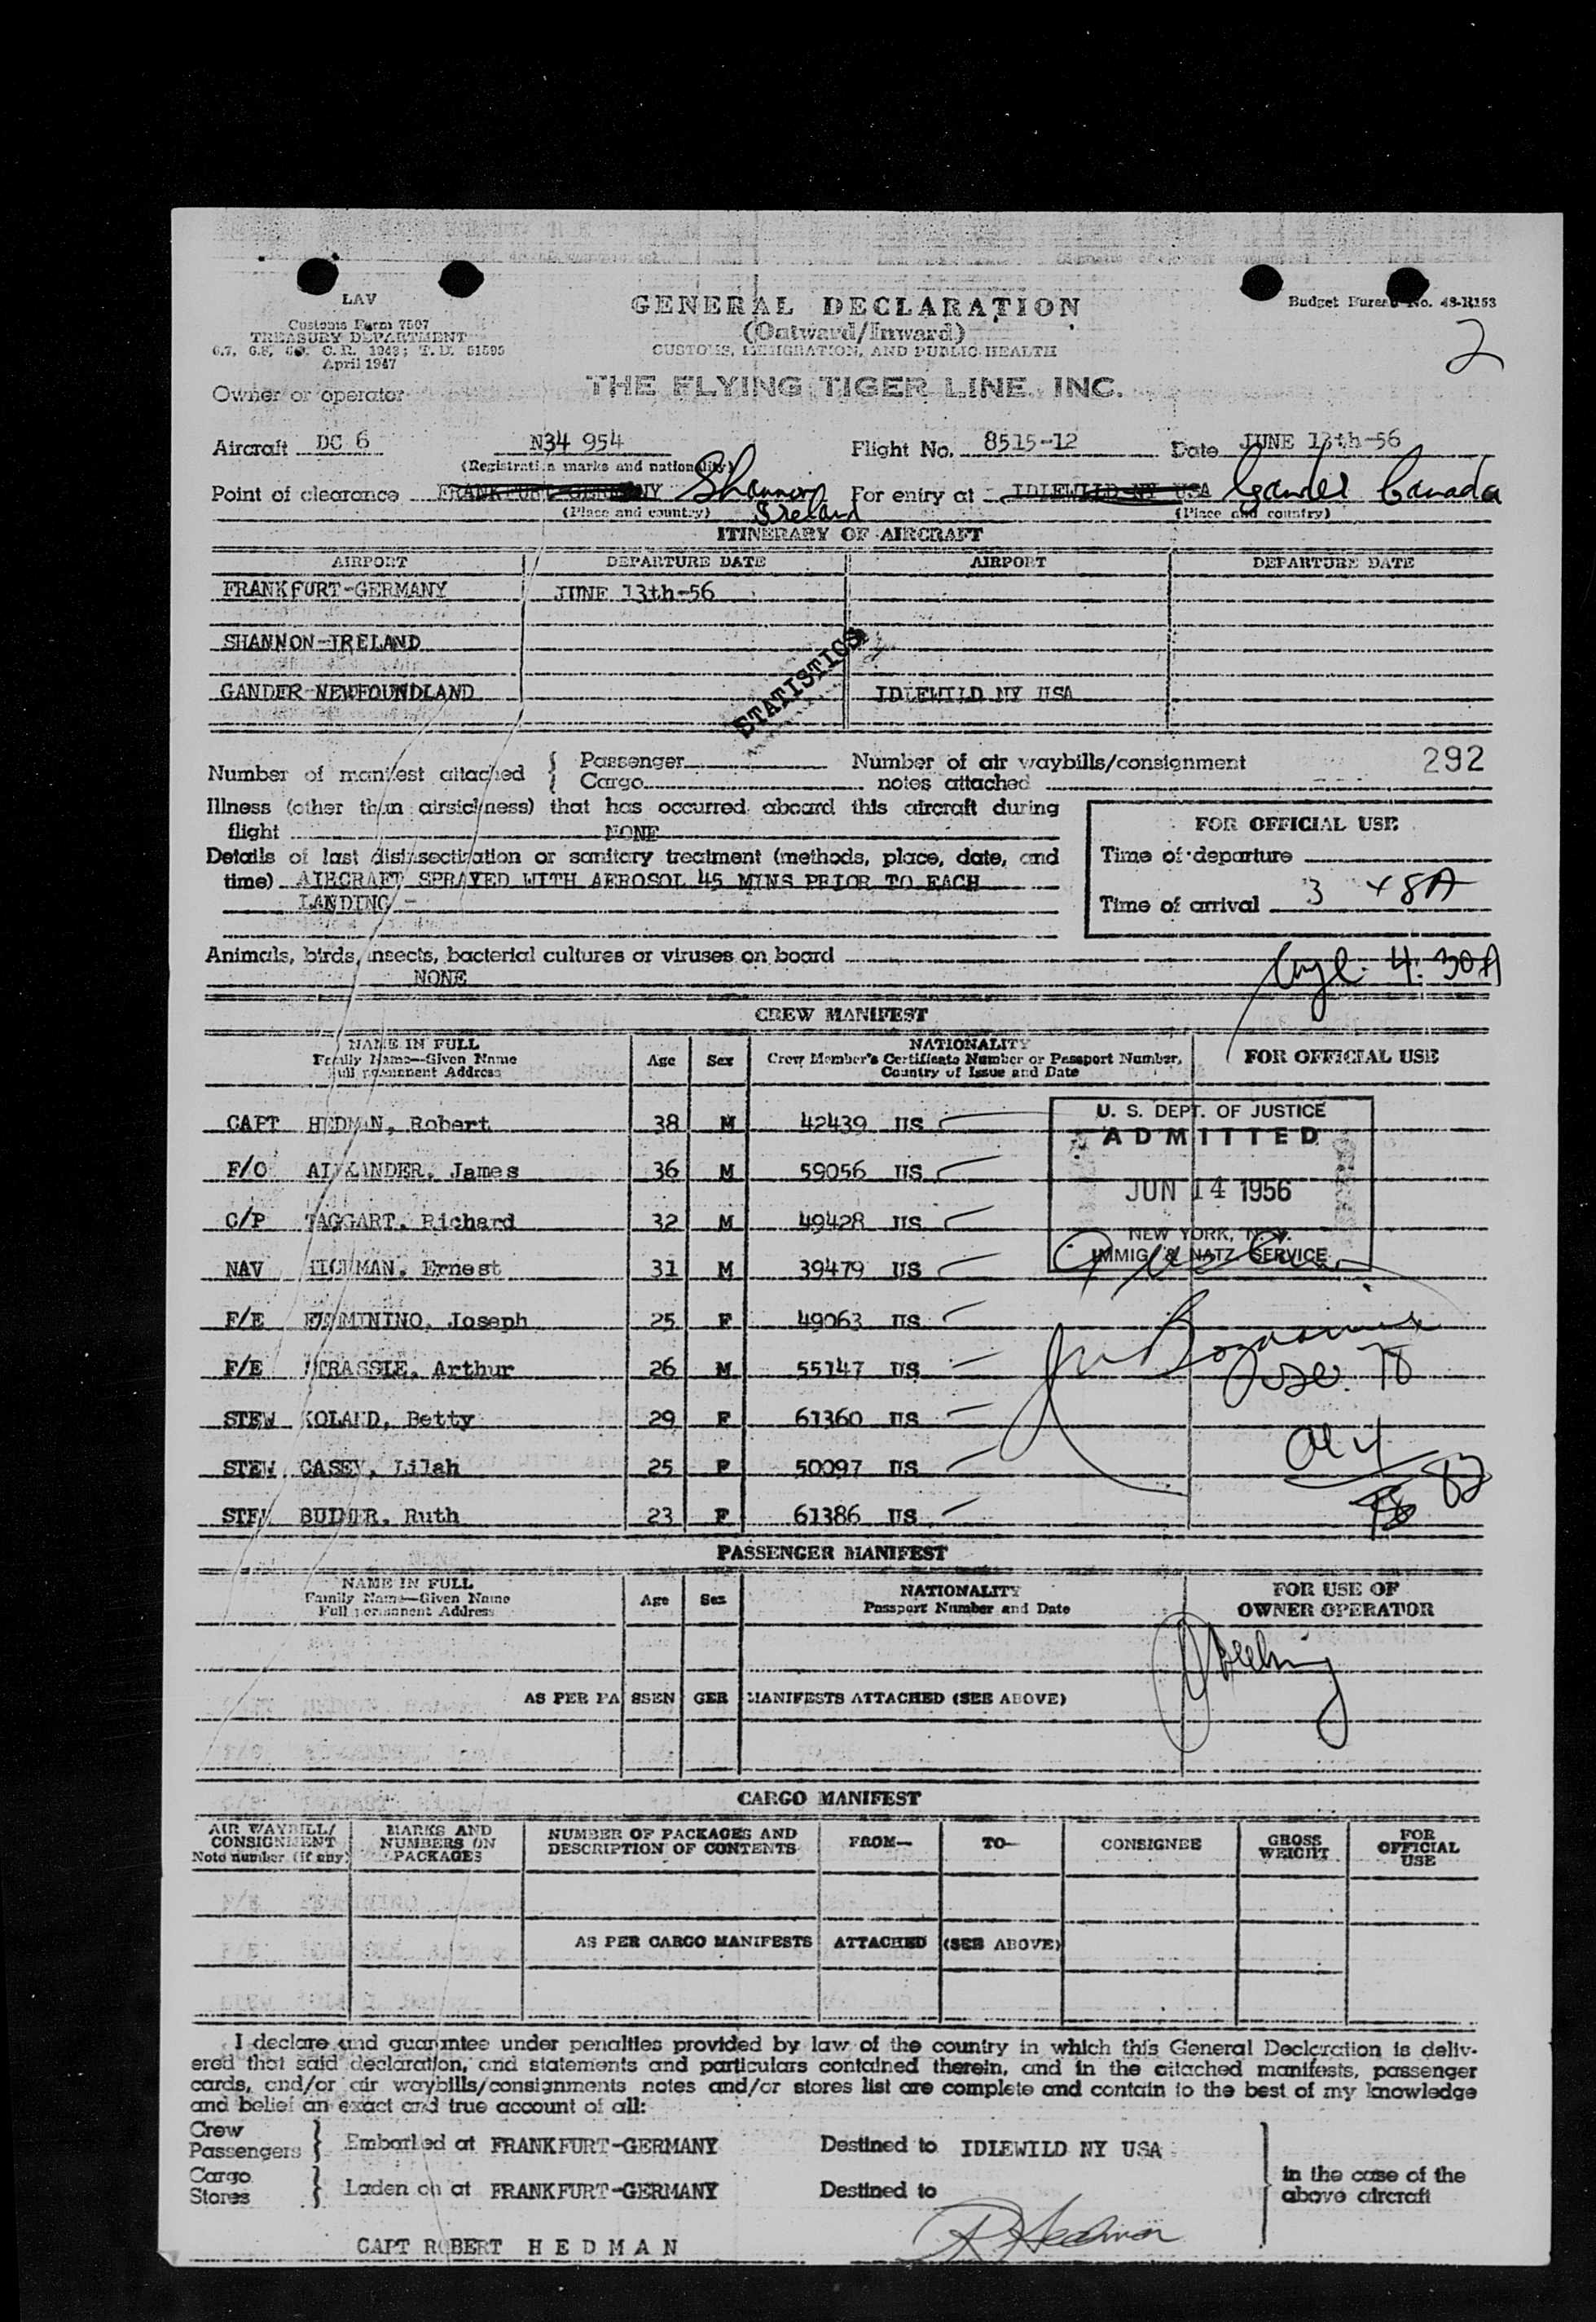 LAV
Customs Form 7507
TREASURY DEPARTMENT
April 1947
GENERAL DECLARATION
(Outward/Inward)
CUSTOMS, IMMIGRATION, AND PUBLIC HEALTH
THE FLYING TIGER LINE, INC.
Budget Bureau No. 48-R153
2
Owner or operator
Aircraft DC 6 N34 954 Flight No. 8515-12 Date JUNE 13th-56
(Registration marks and nationality)
Point of clearance FRANKFURT GERMANY Shannon Ireland For entry at IDLEWILD NY USA Gander Canada
(Place and country) (Place and country)
ITINERARY OF AIRCRAFT
AIRPORT DEPARTURE DATE AIRPORT DEPARTURE DATE
FRANKFURT-GERMANY JUNE 13th-56
SHANNON-IRELAND
STATISTICS
GANDER NEWFOUNDLAND IDLEWILD NY USA
Number of manifest attached { Passenger
Cargo
Number of air waybills/consignment
notes attached
292
Illness (other than airsickness) that has occurred aboard this aircraft during
flight NONE
Details of last disinsectization or sanitary treatment (methods, place, date, and
time) AIRCRAFT SPRAYED WITH AEROSOL 45 MINS PRIOR TO EACH
LANDING -
FOR OFFICIAL USE
Time of departure
Time of arrival 3 48A
Animals, birds, insects, bacterial cultures or viruses on board
NONE
4:30A
CREW MANIFEST
NAME IN FULL
Family Name—Given Name
Full permanent Address
Age Sex
NATIONALITY
Crew Member's Certificate Number or Passport Number,
Country of Issue and Date
FOR OFFICIAL USE
CAPT HEDMAN, Robert 38 M 42439 US
F/O ALEXANDER, James 36 M 59056 US
C/P TAGGART, Richard 32 M 49428 US
NAV HICKMAN, Ernest 31 M 39479 US
F/E Joseph 25 F 49063 US
F/E STRASSLE, Arthur 26 M 55147 US
STEW Betty 29 F 61360 US
STEW CASEY, Lilah 25 F 50097 US
STEW Ruth 23 F 61386 US
U. S. DEPT. OF JUSTICE
ADMITTED
JUN 14 1956
NEW YORK, N. Y.
IMMIG. & NATZ. SERVICE
PASSENGER MANIFEST
NAME IN FULL
Family Name—Given Name
Full permanent Address
Age Sex
NATIONALITY
Passport Number and Date
FOR USE OF
OWNER OPERATOR
AS PER PASSENGER MANIFESTS ATTACHED (SEE ABOVE)
CARGO MANIFEST
AIR WAYBILL/
CONSIGNMENT
Note number (if any)
MARKS AND
NUMBERS ON
PACKAGES
NUMBER OF PACKAGES AND
DESCRIPTION OF CONTENTS
FROM— TO— CONSIGNEE
GROSS
WEIGHT
FOR
OFFICIAL
USE
AS PER CARGO MANIFESTS ATTACHED (SEE ABOVE)
I declare and guarantee under penalties provided by law of the country in which this General Declaration is deliv-
ered that said declaration, and statements and particulars contained therein, and in the attached manifests, passenger
cards, and/or air waybills/consignments notes and/or stores list are complete and contain to the best of my knowledge
and belief an exact and true account of all:
Crew
Passengers } Embarked at FRANKFURT-GERMANY Destined to IDLEWILD NY USA
Cargo
Stores } Laden on at FRANKFURT-GERMANY Destined to
in the case of the
above aircraft
CAPT ROBERT HEDMAN R Hedman